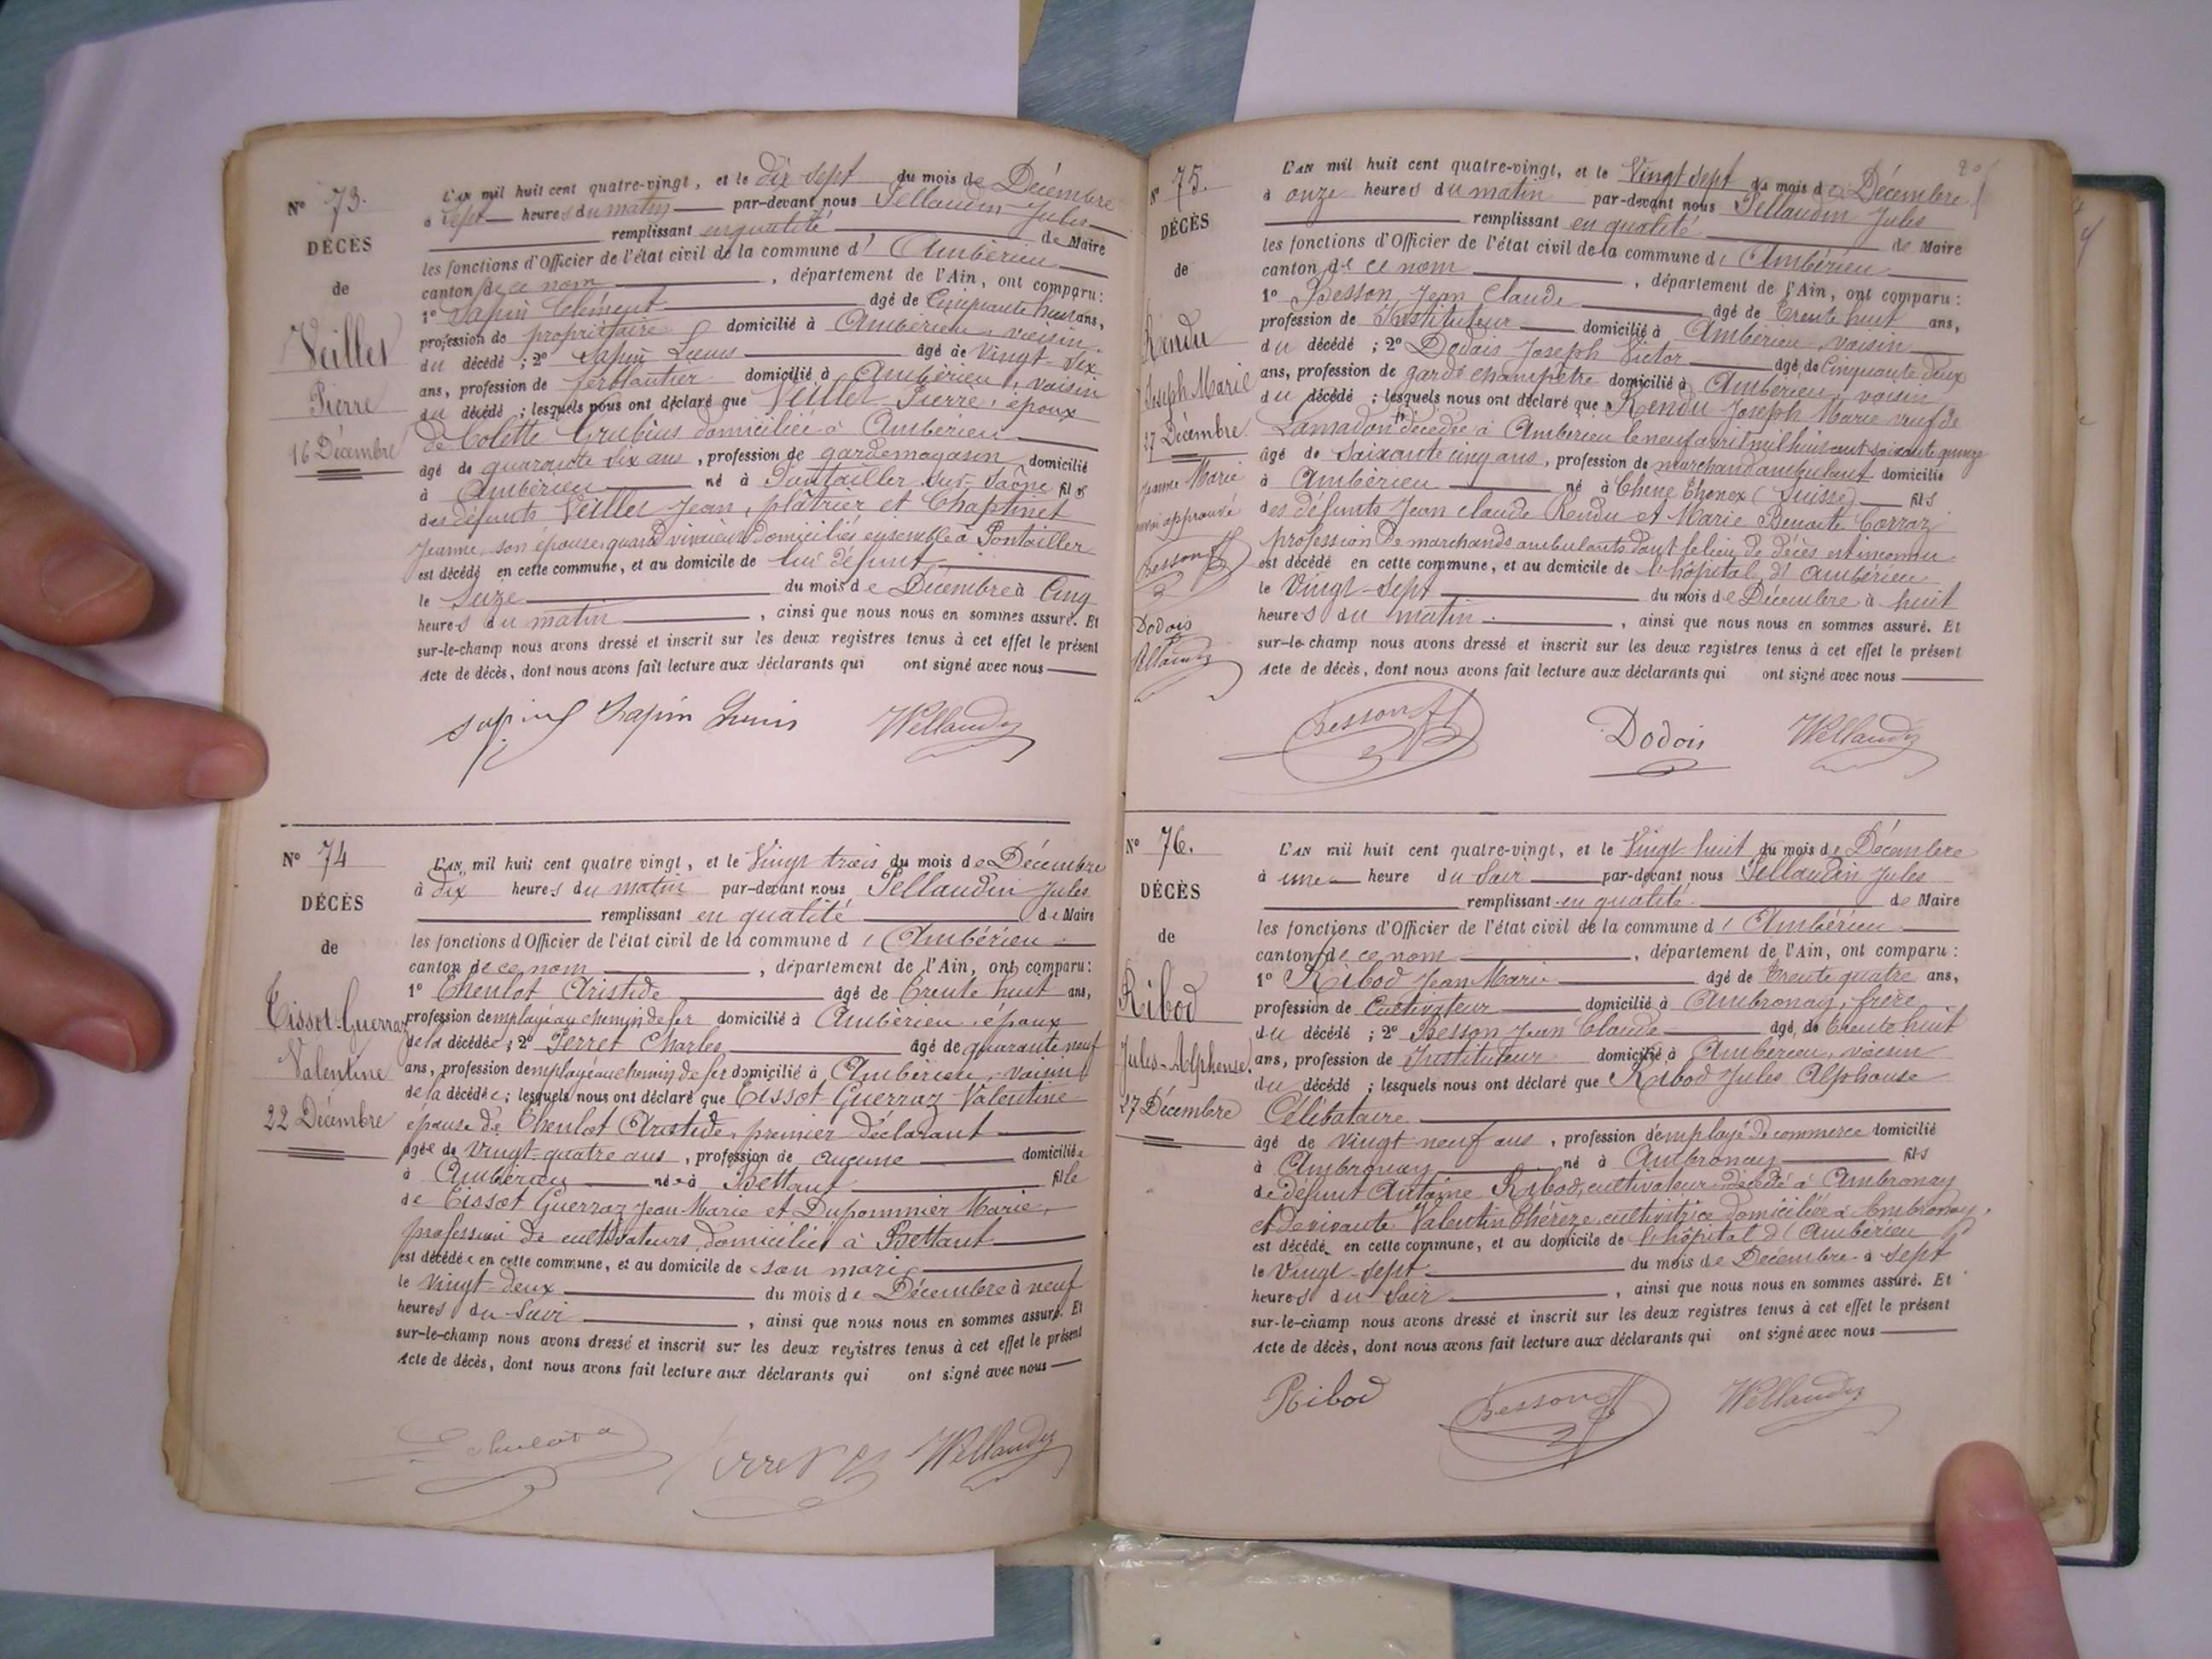 Nº 73.
DÉCÈS
de
Veillet
Pierre
16 Décembre
L'AN mil huit cent quatre-vingt, et le dix sept du mois de Décembre
à Sept heures du matin par-devant nous Pellaudin Jules
remplissant en qualité de Maire
les fonctions d'Officier de l'état civil de la commune d' Ambérieu
canton de ce nom, département de l'Ain, ont comparu:
1º Sapin Clément âgé de Cinquante huit ans,
profession de propriétaire domicilié à Ambérieu, voisin
du décédé; 2º Sapin Louis âgé de Vingt-six
ans, profession de ferblantier domicilié à Ambérieu, voisin
du décédé; lesquels nous ont déclaré que Veillet Pierre, époux
de Colette Grubius domiciliée à Ambérieu
âgé de quarante six ans, profession de gardemagasin domicilié
à Ambérieu né à Pontailler sur-Saône fils
des défunts Veillet Jean, plâtrier et Chaptinet
Jeanne, son épouse, quand vivaient domiciliés ensemble à Pontailler
est décédé en cette commune, et au domicile de lui défunt
le Seize du mois de Décembre à Cinq
heures du matin, ainsi que nous nous en sommes assuré. Et
sur-le-champ nous avons dressé et inscrit sur les deux registres tenus à cet effet le présent
Acte de décès, dont nous avons fait lecture aux déclarants qui ont signé avec nous
Sapin Sapin Louis
Nº 74
DÉCÈS
de
Tissot-Guerraz
Valentine
22 Décembre
L'AN mil huit cent quatre vingt, et le Vingt trois du mois de Décembre
à dix heures du matin par-devant nous Pellaudin Jules
remplissant en qualité de Maire
les fonctions d'Officier de l'état civil de la commune d' Ambérieu
canton de ce nom, département de l'Ain, ont comparu:
1º Chenlot Aristide âgé de Trente huit ans,
profession d'employé au chemin de fer domicilié à Ambérieu, époux
de la décédée; 2º Perret Charles âgé de quarante neuf
ans, profession d'employé au chemin de fer domicilié à Ambérieu, voisin
de la décédée; lesquels nous ont déclaré que Tissot Guerraz Valentine
épouse de Chenlot Aristide, premier déclarant
âgée de Vingt-quatre ans, profession de aucune domiciliée
à Ambérieu née à Bettant fille
de Tissot Guerraz Jean Marie et Dupommier Marie,
profession de cultivateurs, domiciliés à Bettant
est décédée en cette commune, et au domicile de son mari
le Vingt-deux du mois de Décembre à neuf
heures du Soir, ainsi que nous nous en sommes assuré. Et
sur-le-champ nous avons dressé et inscrit sur les deux registres tenus à cet effet le présent
Acte de décès, dont nous avons fait lecture aux déclarants qui ont signé avec nous
Perret
Nº 75.
DÉCÈS
de
Rendu
Joseph Marie
27 Décembre
Jeanne Marie
renvoi approuvé
Besson
Dodois
L'AN mil huit cent quatre-vingt, et le Vingt sept du mois de Décembre
à onze heures du matin par-devant nous Pellaudin Jules
remplissant en qualité de Maire
les fonctions d'Officier de l'état civil de la commune d' Ambérieu
canton de ce nom, département de l'Ain, ont comparu:
1º Besson Jean Claude âgé de Trente huit ans,
profession de Instituteur domicilié à Ambérieu voisin
du décédé; 2º Dodois Joseph Victor âgé de Cinquante deux
ans, profession de garde champêtre domicilié à Ambérieu, voisin
du décédé; lesquels nous ont déclaré que Rendu Joseph Marie veuf de
Lamadon décédée à Ambérieu le neuf avril mil huit cent soixante quinze
âgé de Soixante cinq ans, profession de marchand ambulant domicilié
à Ambérieu né à Chêne Thonex (Suisse) fils
des défunts Jean Claude Rendu et Marie Benoite Corraz
profession de marchands ambulants dont le lieu de décès est inconnu
est décédé en cette commune, et au domicile de l'hôpital d'Ambérieu
le Vingt-sept du mois de Décembre à huit
heures du matin, ainsi que nous nous en sommes assuré. Et
sur-le-champ nous avons dressé et inscrit sur les deux registres tenus à cet effet le présent
Acte de décès, dont nous avons fait lecture aux déclarants qui ont signé avec nous
Besson Dodois
Nº 76.
DÉCÈS
de
Ribod
Jules-Alphonse
27 Décembre
L'AN mil huit cent quatre-vingt, et le Vingt-huit du mois de Décembre
à une heure du Soir par-devant nous Pellaudin Jules
remplissant en qualité de Maire
les fonctions d'Officier de l'état civil de la commune d' Ambérieu
canton de ce nom, département de l'Ain, ont comparu:
1º Ribod Jean Marie âgé de Trente quatre ans,
profession de Cultivateur domicilié à Ambronay, frère
du décédé; 2º Besson Jean Claude âgé de Trente huit
ans, profession de Instituteur domicilié à Ambérieu, voisin
du décédé; lesquels nous ont déclaré que Ribod Jules Alphonse
Célibataire
âgé de Vingt-neuf ans, profession d'employé de commerce domicilié
à Ambronay né à Ambronay fils
de défunt Antoine Ribod, cultivateur décédé à Ambronay
et de vivante Valentin Thérèze cultivatrice domiciliée à Ambronay,
est décédé en cette commune, et au domicile de l'hôpital d'Ambérieu
le Vingt-sept du mois de Décembre à sept
heures du Soir, ainsi que nous nous en sommes assuré. Et
sur-le-champ nous avons dressé et inscrit sur les deux registres tenus à cet effet le présent
Acte de décès, dont nous avons fait lecture aux déclarants qui ont signé avec nous
Ribod Besson